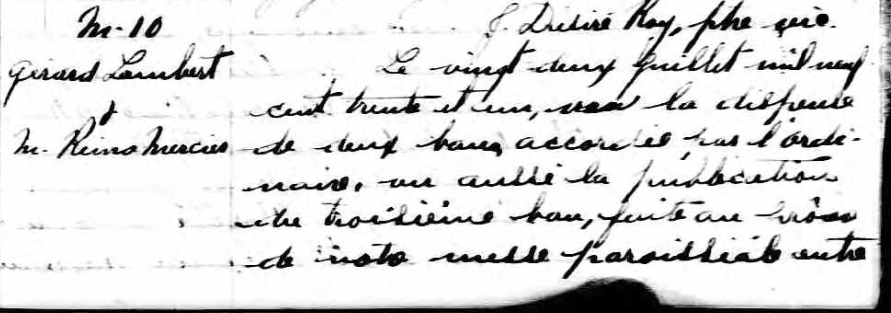 M-10
J. Désiré Roy, ptre curé.
Gérard Lambert
&
M. Reina Mercier
Le vingt-deux juillet mil neuf
cent trente et un, vu la dispense
de deux bans accordée par l'ordi-
naire, vu aussi la publication
du troisième ban, faite au prône
de notre messe paroissiale entre